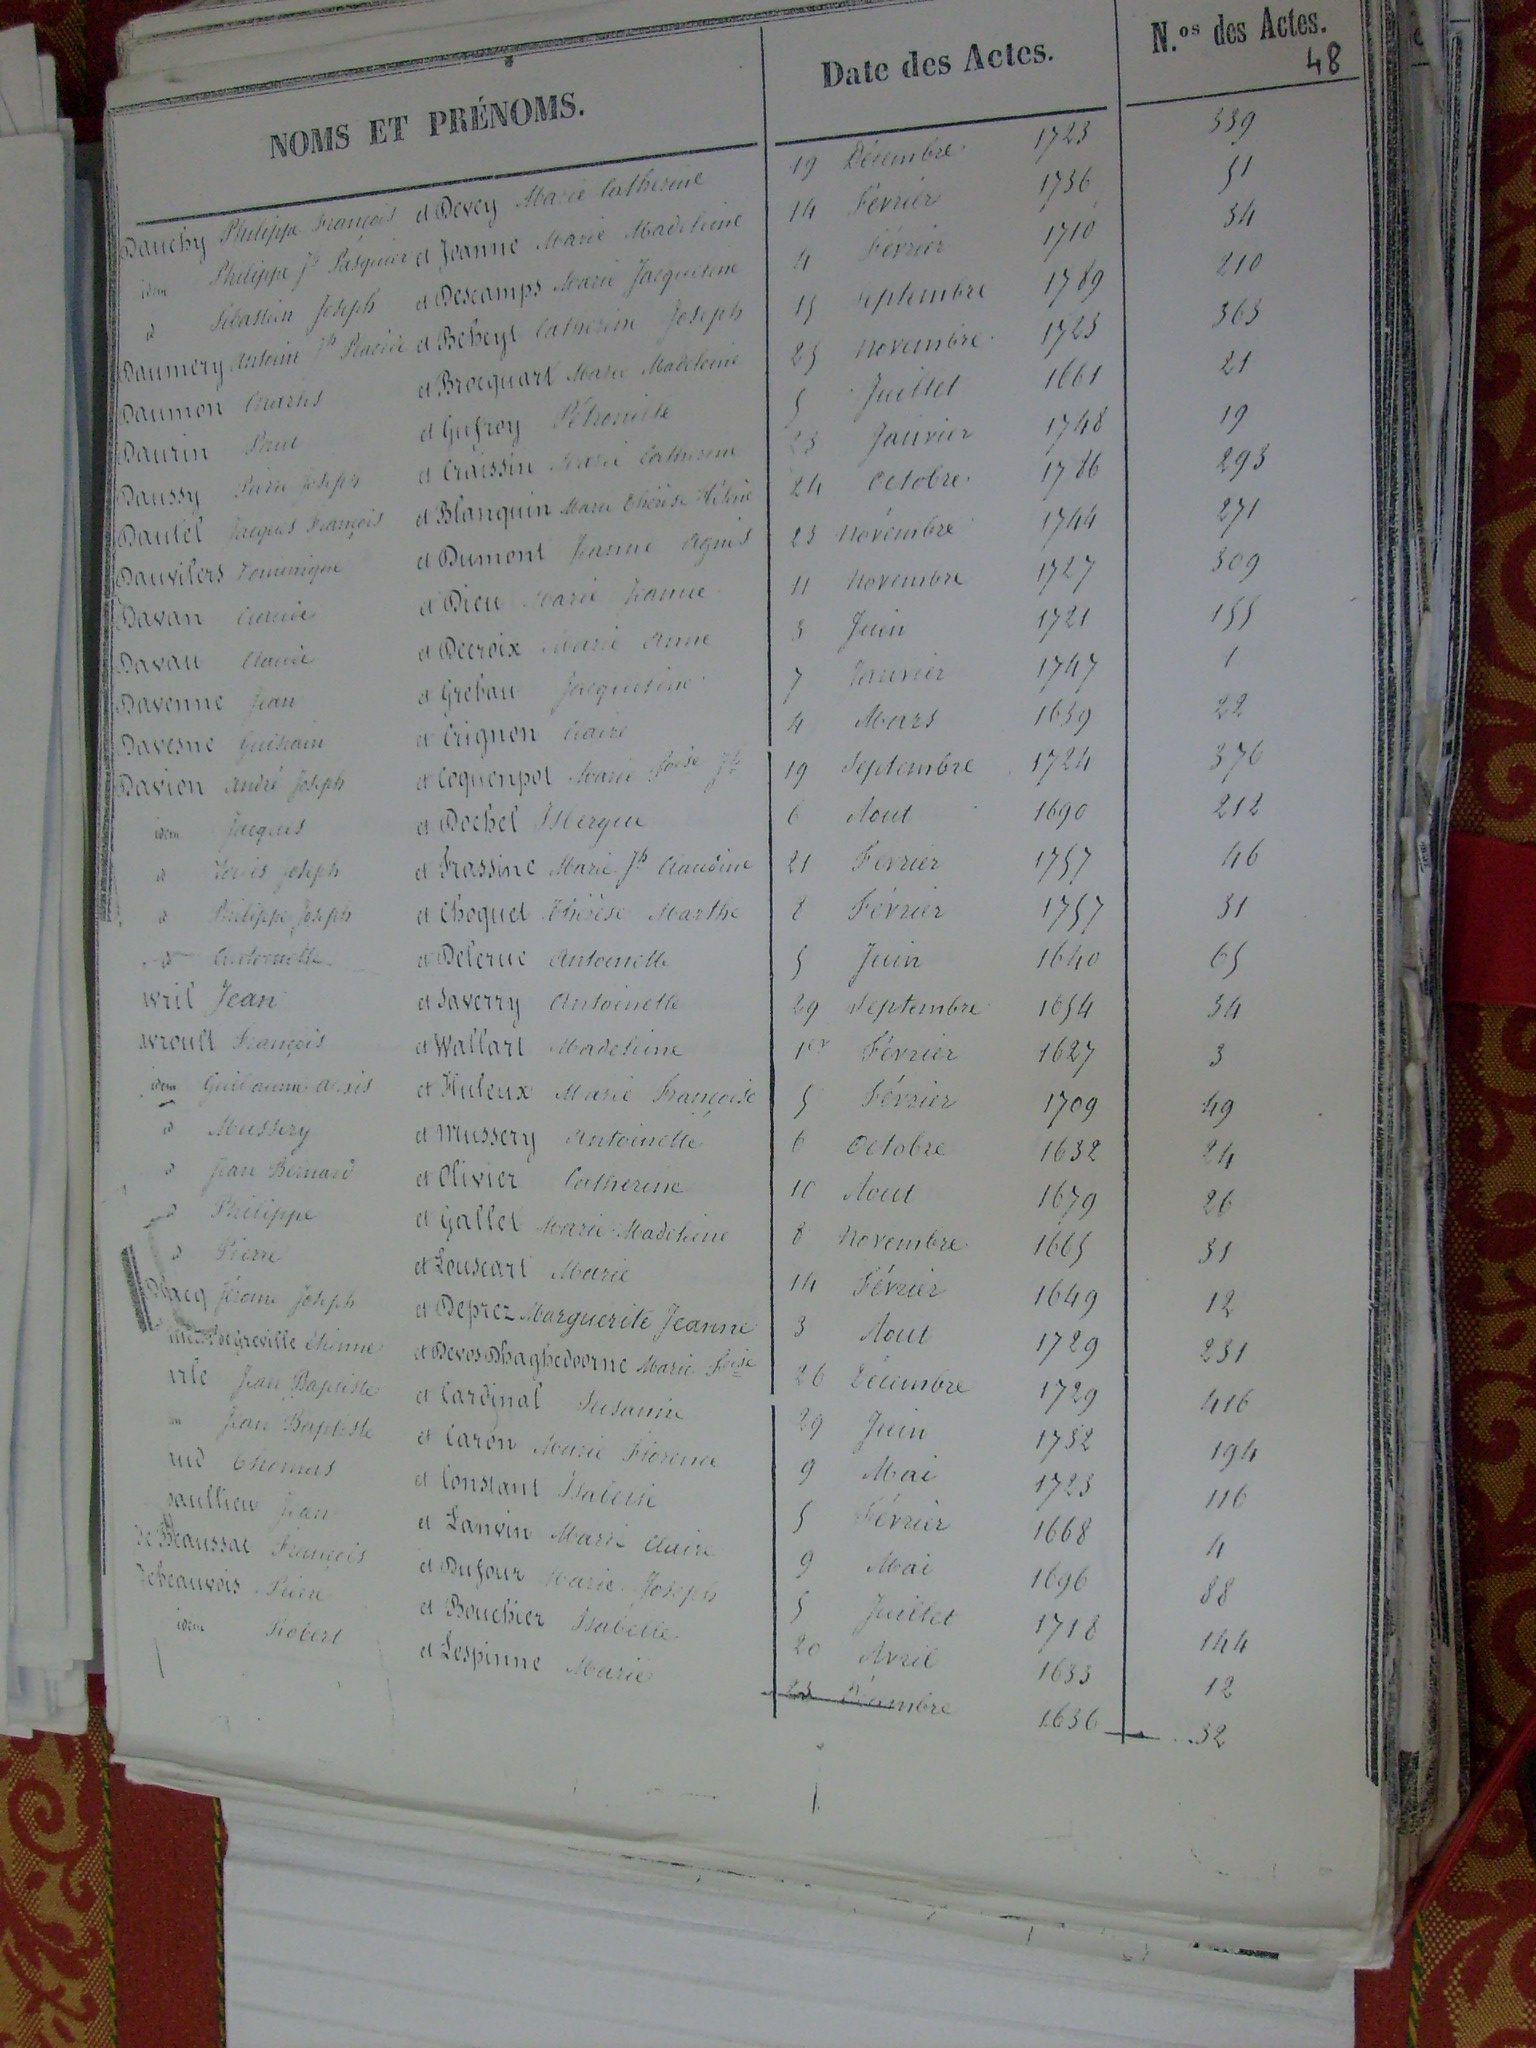 NOMS ET PRÉNOMS. Date des Actes. N.os des Actes.
48
Dauchy Philippe François et Devey Marie Catherine 19 Décembre 1723 339
idem Philippe Jh Pasquier et Jeanne Marie Madeleine 14 Février 1736 51
id Sébastien Joseph et Descamps Marie Jacqueline 4 Février 1710 34
Daumery Antoine Jh Placide et Beheyt Catherine Joseph 15 septembre 1789 210
Daumon Charles et Brocquart Marie Madeleine 25 novembre 1723 363
Daurin Paul et Gufroy Pétronille 5 Juillet 1661 21
Daussy Pierre Joseph et Craissin Marie Catherine 23 Janvier 1748 19
Dautel Jacques François et Blanquin Marie Thérèse Hélène 24 octobre 1786 293
Dauvilers Dominique et Dumont Jeanne Agnès 23 novembre 1744 271
Davan Claude et Dieu Marie Jeanne 11 novembre 1727 309
Davau Claude et Decroix Marie Anne 3 Juin 1721 155
Davenne Jean et Grebau Jacqueline 7 Janvier 1747 1
Davesne Guislain et Crignon Claire 4 Mars 1639 22
Davion André Joseph et Coquenpot Marie foise Jh 19 Septembre 1724 376
idem Jacques et Dochel Isbergue 6 Aout 1690 212
id Louis Joseph et Frassine Marie Jh Claudine 21 Fevrier 1757 46
id Philippe Joseph et Choquet Thérèse Marthe 8 Février 1757 31
id Antoinette et Delerue Antoinette 5 Juin 1640 65
vril Jean et Saverry Antoinette 29 Septembre 1654 34
vroult François et Wallart Madeleine 1er Février 1627 3
idem Guillaume Alexis et Huleux Marie Françoise 5 Février 1709 49
id Mussery et Mussery Antoinette 6 octobre 1632 24
id Jean Bernard et Olivier Catherine 10 Aout 1679 26
id Philippe et Gallet Marie Madeleine 8 Novembre 1665 31
id Pierre et Louscart Marie 14 Février 1649 12
acq Jérome Joseph et Deprez Marguerite Jeanne 3 Aout 1729 231
de Greville étienne et Devos Dhaghedoorne Marie foise 26 Décembre 1729 416
arle Jean Baptiste et Cardinal Susanne 29 Juin 1732 194
Jean Baptiste et Caron Marie Florence 9 Mai 1723 116
Thomas et Constant Isabelle 5 Février 1668 4
aullieu Jean et Lanvin Marie Claire 9 Mai 1696 88
de Beaussac François et Dufour Marie Joseph 5 Juillet 1718 144
debeauvois Pierre et Bouchier Isabelle 20 Avril 1633 12
idem Robert et Lespinne Marie 23 Décembre 1636 32